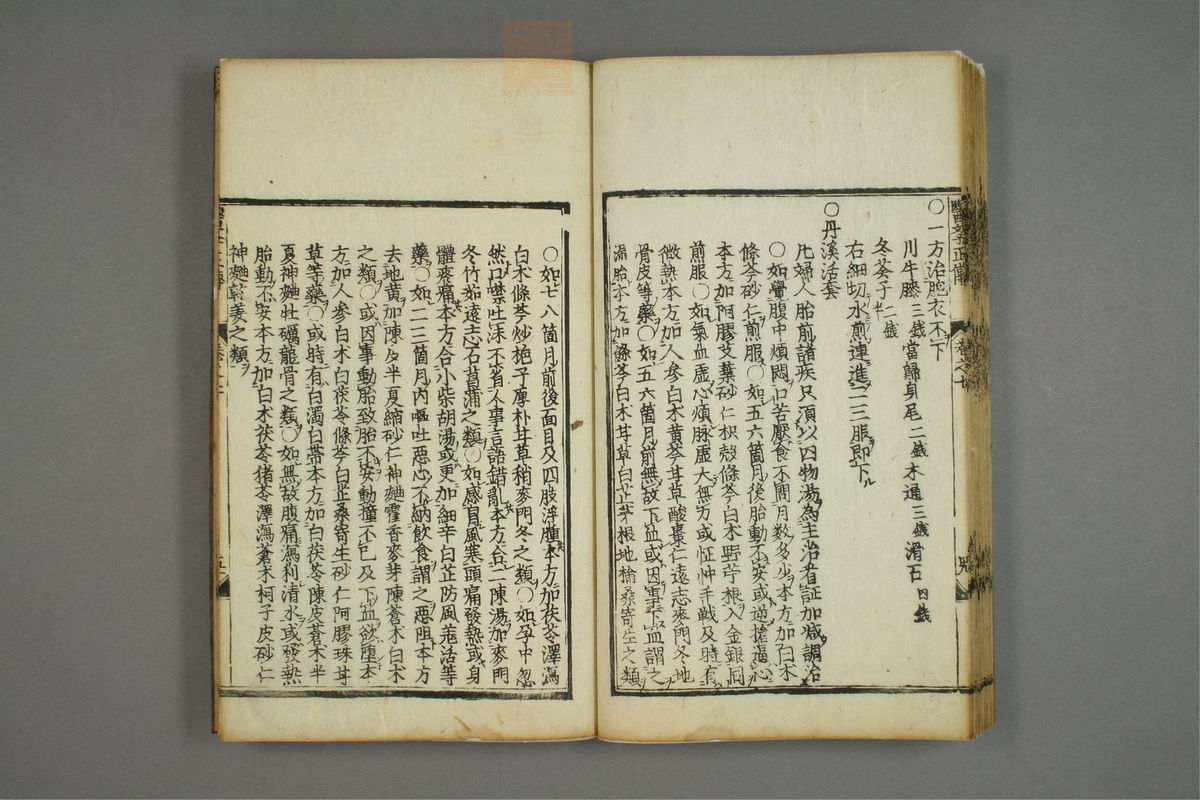 醫學正傳
卷之七
〇一方治胞衣不下
川牛膝三錢當歸身尾二錢木通三錢滑石四錢
冬葵子二錢半
右細切水煎連進二三服即下
〇丹溪活套
凡婦人胎前諸疾只須以四物湯為主治看証加減調治
〇如覺腹中煩悶口苦厭食不問月數多少本方加白木
條芩砂仁煎服〇如五六箇月後胎動不安或逆搶逼心
本方加阿膠艾葉砂仁枳殼條芩白木野苧根入金銀同
煎服〇如氣血虛心煩脉虛大無力或怔忡手戰及時有
微熱本方加人參白木黄芩甘草酸棗仁遠志麥門冬地
骨皮等藥〇如五六箇月前無故下血或因事下血謂之
漏胎本方加條芩白木甘草白芷茅根地榆桑寄生之類
〇如七八箇月前後面目及四肢浮腫本方加茯苓澤瀉
白木條芩炒梔子厚朴甘草稍麥門冬之類〇如孕中忽
然口噤吐沫不省人事言語錯亂本方合二陳湯加麥門
冬竹茹遠志石菖蒲之類〇如感冒風寒頭痛發熱或身
體疼痛本方合小柴胡湯或更加細辛白芷防風羗活等
藥〇如一二三箇月内嘔吐惡心不納飲食謂之惡阻本方
去地黄加陳皮半夏縮砂仁神麯藿香麥芽陳蒼木白木
之類〇或因事動胎致胎不安動撞不已及下血欲墮本
方加人參白木白茯苓條芩白芷桑寄生砂仁阿膠珠甘
草等藥〇或時有白濁白帶本方加白茯苓陳皮蒼木半
夏神麯牡礪龍骨之類〇如無故腹痛瀉利清水或發熱
胎動不安本方加白木茯苓猪苓澤瀉蒼木柯子皮砂仁
神麯乾姜之類